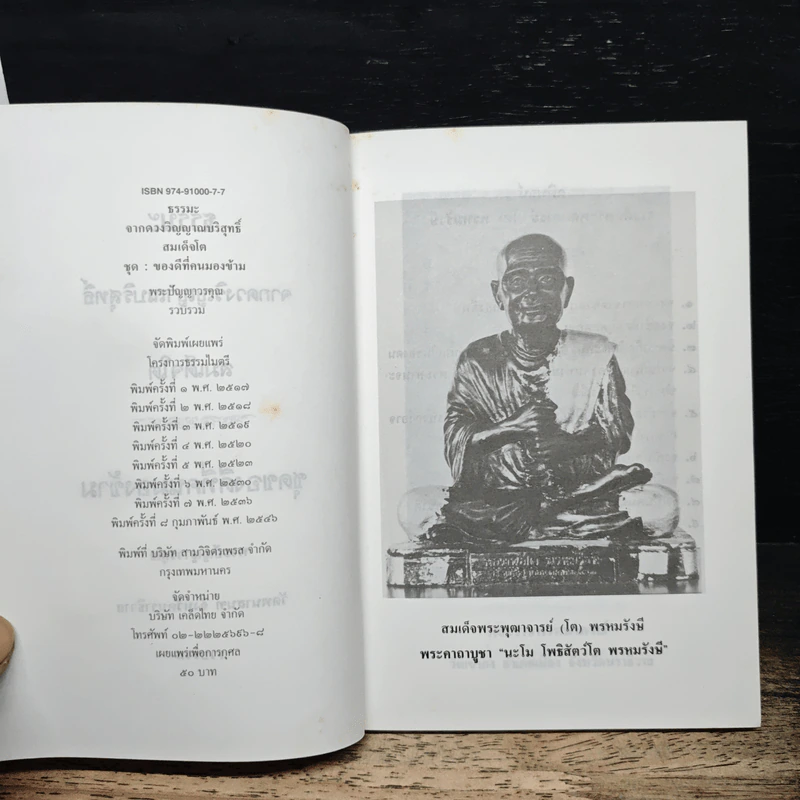 ISBN 974-91000-7-7
ธรรมะ
จากดวงวิญญาณบริสุทธิ์
สมเด็จโต
ชุด : ของดีที่คนมองข้าม
พระปัญญาวรคุณ
รวบรวม
จัดพิมพ์เผยแพร่
โครงการธรรมไมตรี
พิมพ์ครั้งที่ ๑ พ.ศ. ๒๕๑๗
พิมพ์ครั้งที่ ๒ พ.ศ. ๒๕๑๘
พิมพ์ครั้งที่ ๓ พ.ศ. ๒๕๑๙
พิมพ์ครั้งที่ ๔ พ.ศ. ๒๕๒๐
พิมพ์ครั้งที่ ๕ พ.ศ. ๒๕๒๓
พิมพ์ครั้งที่ ๖ พ.ศ. ๒๕๓๐
พิมพ์ครั้งที่ ๗ พ.ศ. ๒๕๓๖
พิมพ์ครั้งที่ ๘ กุมภาพันธ์ พ.ศ. ๒๕๔๖
พิมพ์ที่ บริษัท สามวิจิตรเพรส จำกัด
กรุงเทพมหานคร
จัดจำหน่าย
บริษัท เคล็ดไทย จำกัด
โทรศัพท์ ๐๒-๒๒๒๕๖๙๖-๘
เผยแพร่เพื่อการกุศล
๕๐ บาท
สมเด็จพระพุฒาจารย์ (โต) พรหมรังษี
พระคาถาบูชา "นะโม โพธิสัตว์โต พรหมรังษี"